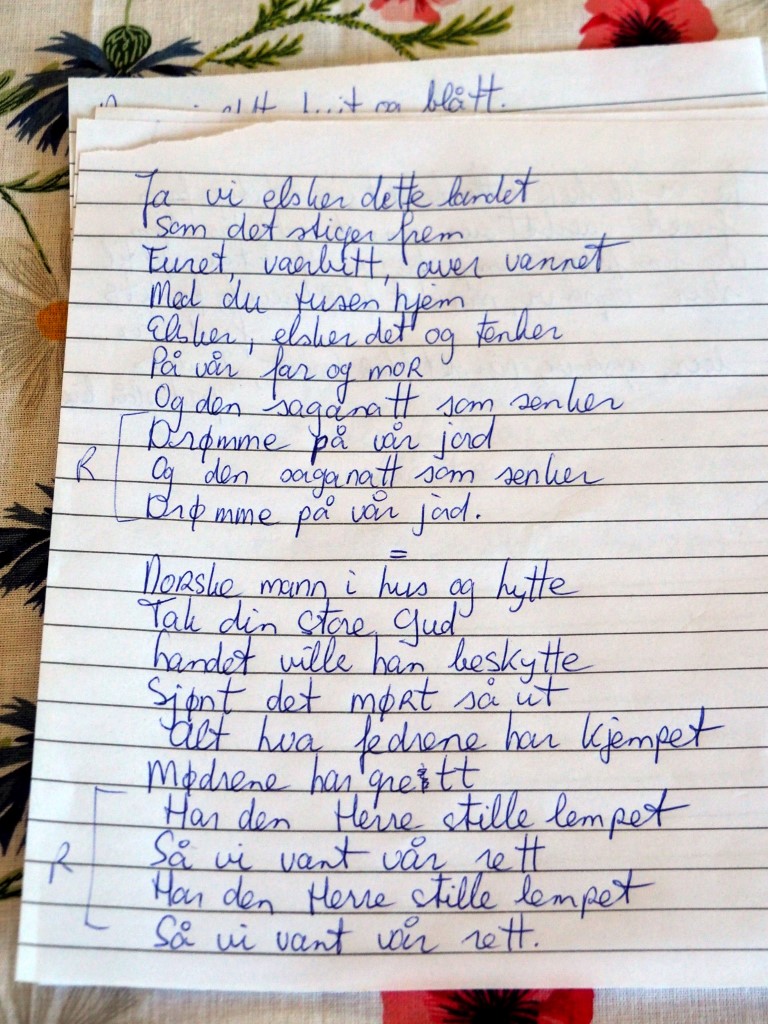 blått.
Ja vi elsker dette landet
Som det stiger frem
Furet, værbitt, over vannet
Med du tusen hjem
Elsker, elsker det og tenker
På vår far og moR
Og den saganatt som senker
Drømme på vår jord
R
Og den saganatt som senker
Drømme på vår jord.
=
Norske mann i hus og hytte
Tak din store Gud
Landet ville han beskytte
Sjønt det mørt så ut
Alt hva fedrene har kjempet
Mødrene har grett
Har den Herre stille lempet
R
Så vi vant vår rett
Har den Herre stille lempet
Så vi vant vår rett.